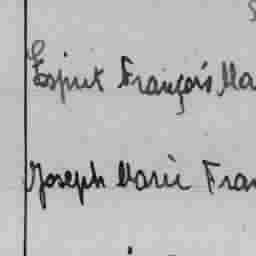 Esprit François Ma
Joseph Marie Fran